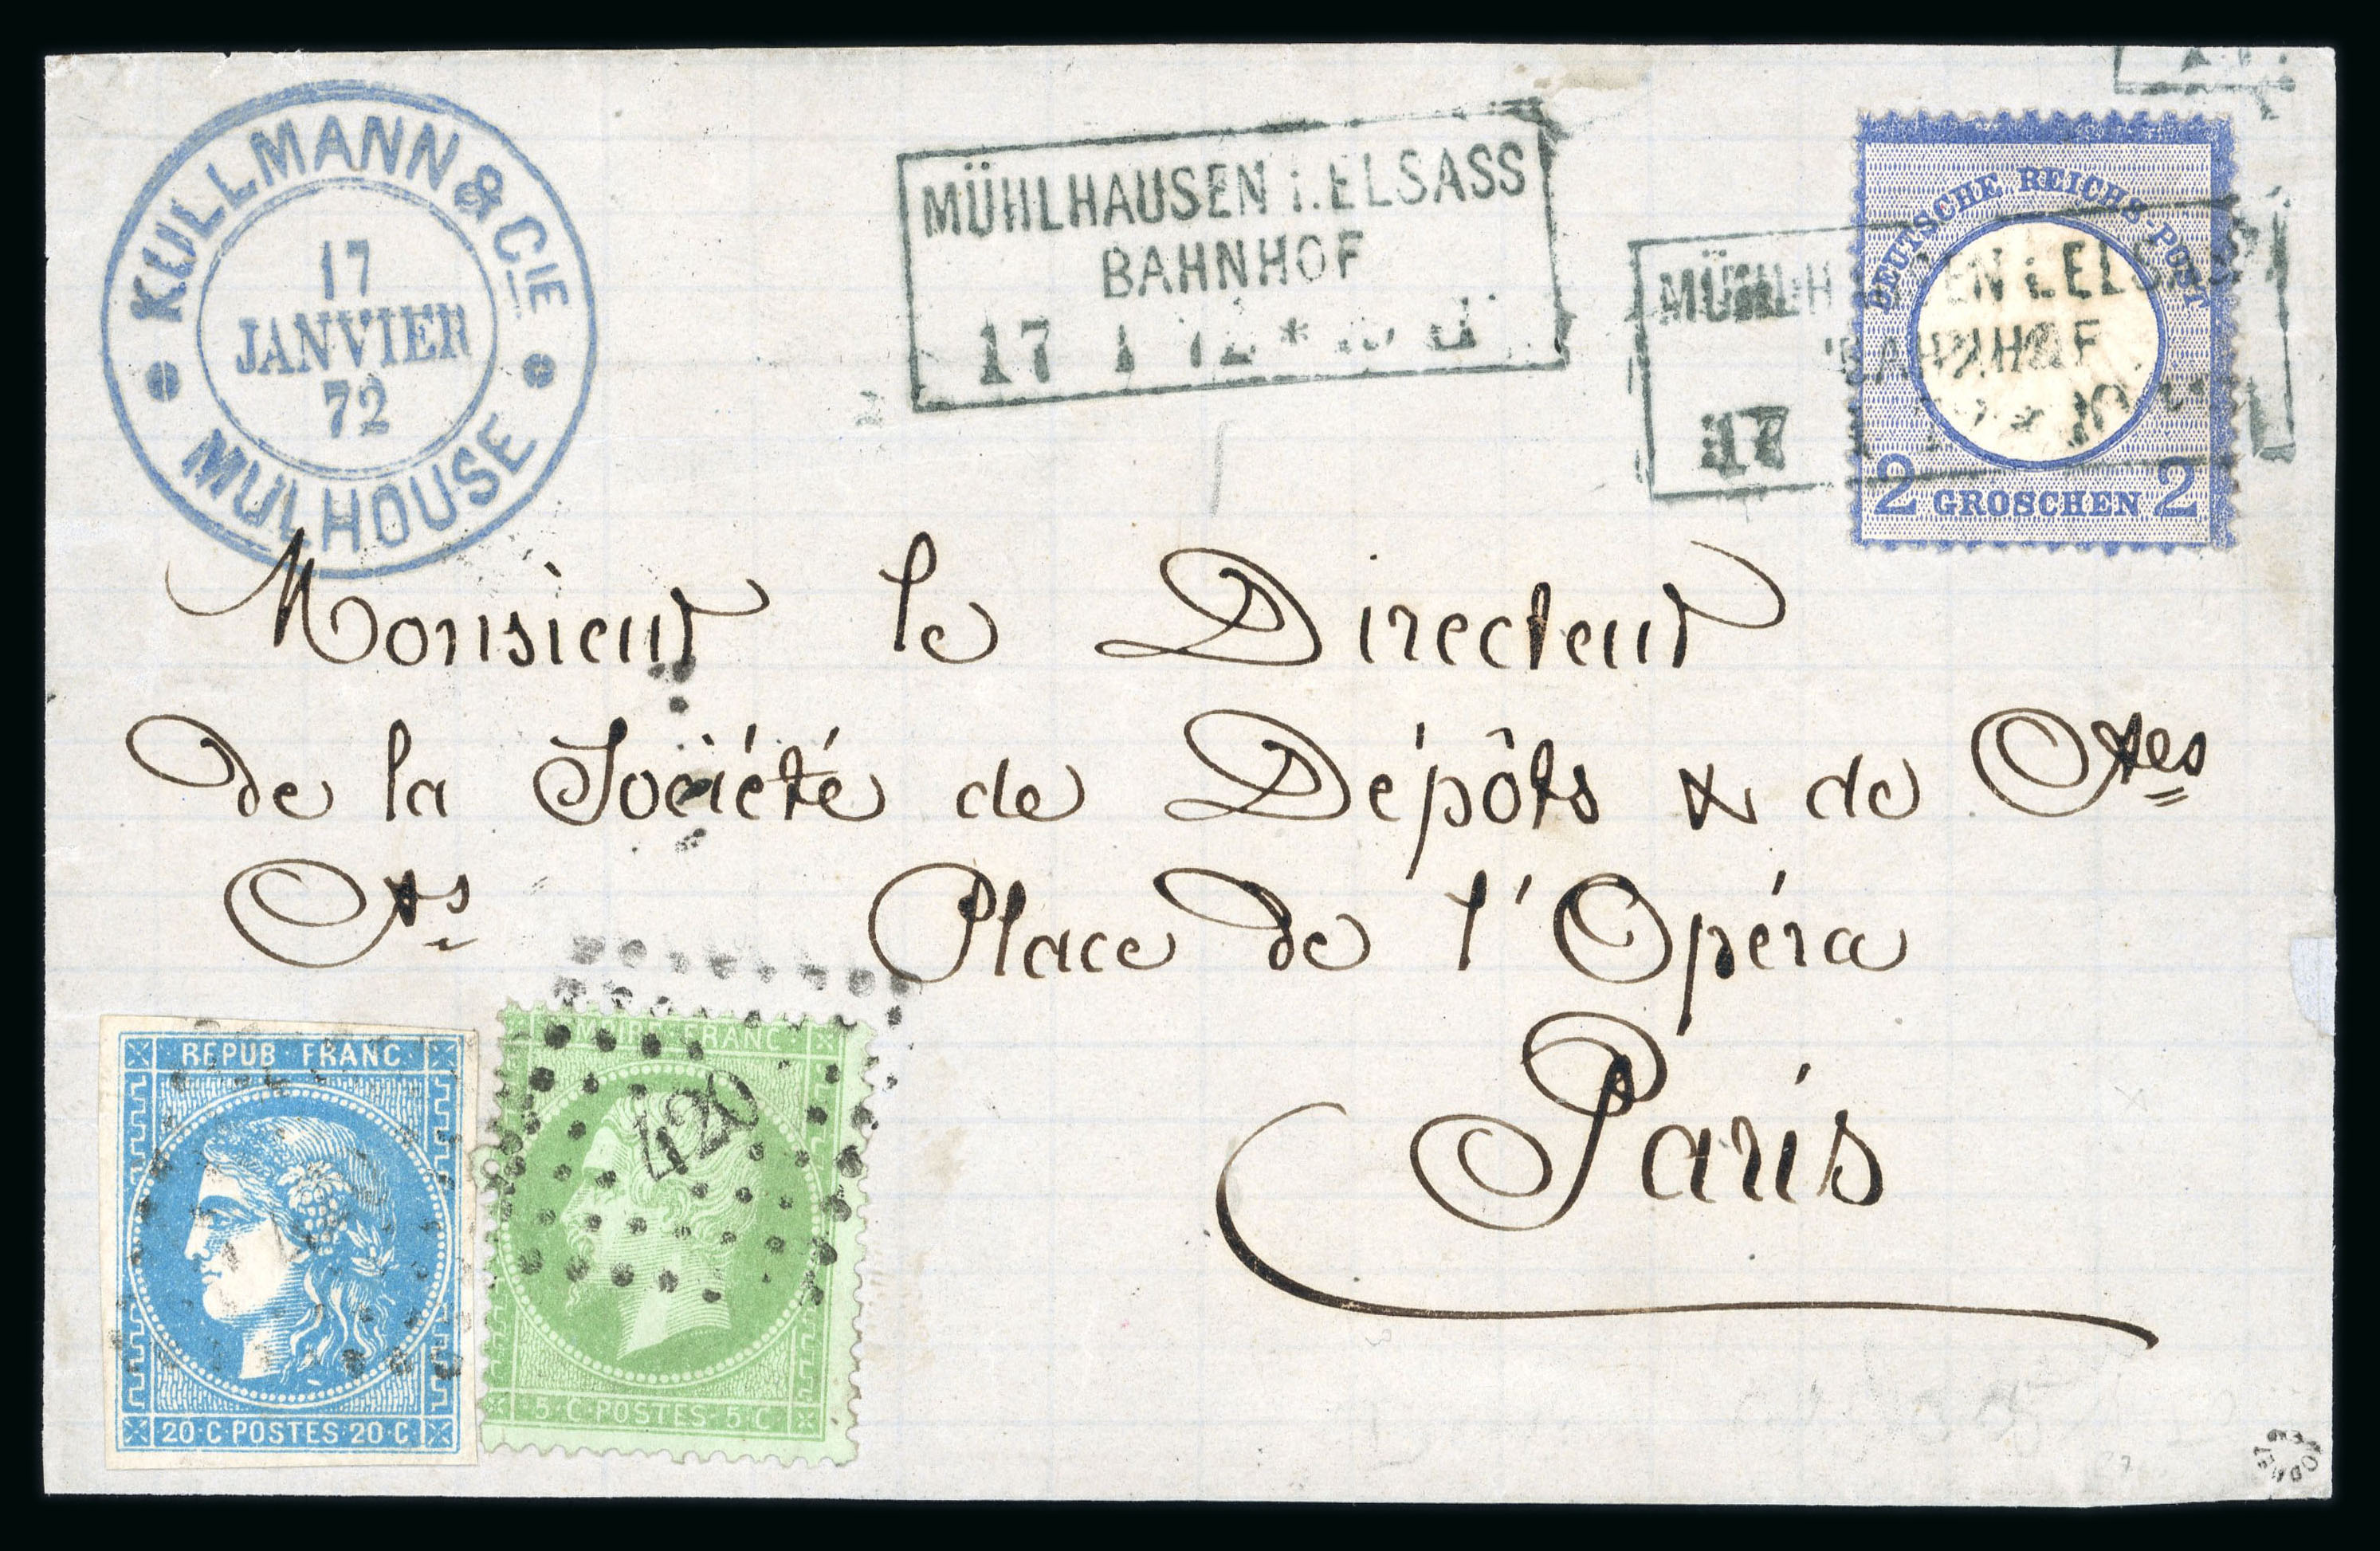 KULLMANN & CIE
17
JANVIER
72
MULHOUSE
MÜHLHAUSEN i. ELSASS
BAHNHOF
17 1 72 *
DEUTSCHE REICHS-POST
2 GROSCHEN 2
MÜHLHAUSEN i. ELSASS
BAHNHOF
17
Monsieur le Directeur
de la Société de Dépôts & de Ctes
Cts Place de l'Opéra
Paris
REPUB · FRANC ·
20 · C POSTES · 20 · C
EMPIRE · FRANC ·
420
· 5 · C · POSTES · 5 · C ·